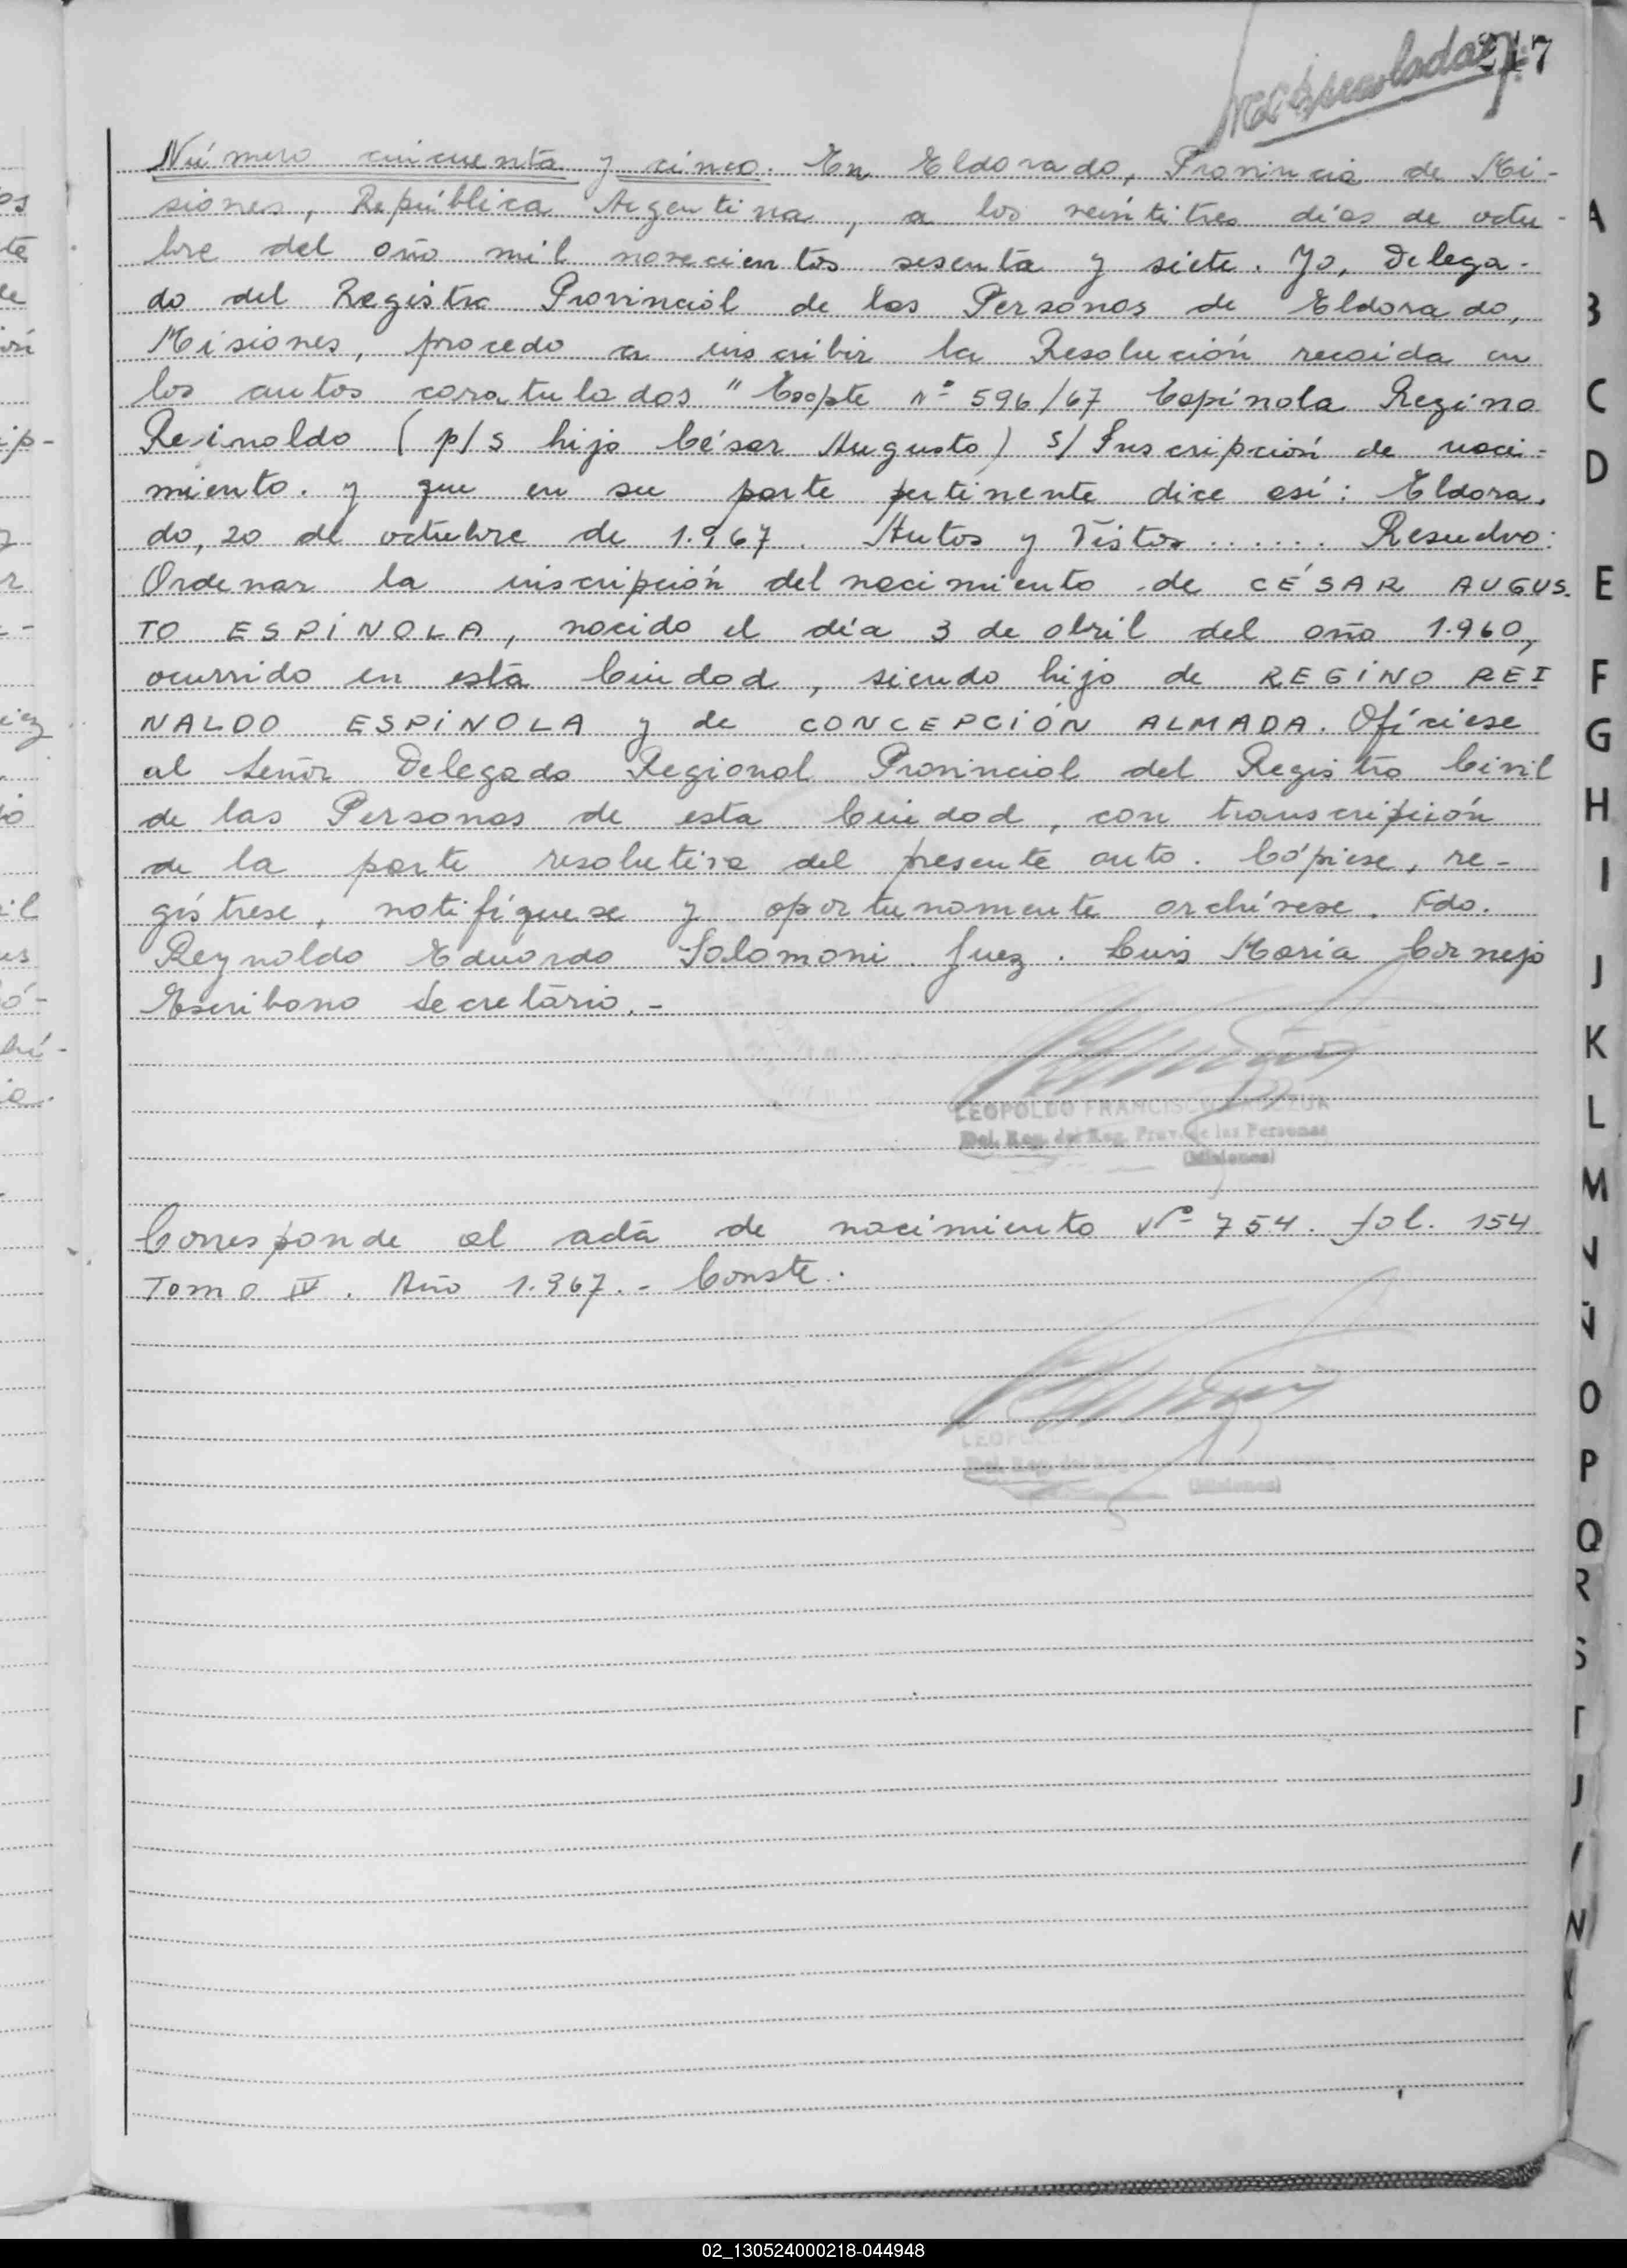 217
Número cincuenta y cinco. En Eldorado, Provincia de Mi-
siones, República Argentina, a los veintitres días de octu-
bre del año mil novecientos sesenta y siete. Yo, Delega-
do del Registro Provincial de las Personas de Eldorado,
Misiones, procedo a inscribir la Resolución recaida en
los autos caratulados " Expte Nº 596/67 Espínola Regino
Reinaldo (p/s hijo César Augusto) s/ Inscripción de naci-
miento. y que en su parte pertinente dice así: Eldora-
do, 20 de octubre de 1.967. Autos y Vistos ...... Resuelvo:
Ordenar la inscripción del nacimiento de CÉSAR AUGUS-
TO ESPÍNOLA, nacido el día 3 de abril del año 1.960,
ocurrido en esta Ciudad, siendo hijo de REGINO REI
NALDO ESPÍNOLA y de CONCEPCIÓN ALMADA. Ofíciese
al Señor Delegado Regional Provincial del Registro Civil
de las Personas de esta Ciudad, con transcripción
de la parte resolutiva del presente auto. Cópiese, re-
gístrese, notifíquese y oportunamente archívese. Fdo.
Reynaldo Eduardo Solomoni. Juez. Luis María Cornejo
Escribano Secretario.-
LEOPOLDO FRANCISCO
Del. Reg. del Reg. Prov. de las Personas
(Misiones)
Corresponde al acta de nacimiento Nº 754. fol. 154
Tomo IV. Año 1.967.- Conste.
LEOPOLDO
Del. Reg. del Reg.
(Misiones)
A
B
C
D
E
F
G
H
I
J
K
L
M
N
Ñ
O
P
Q
R
S
T
02_130524000218-044948